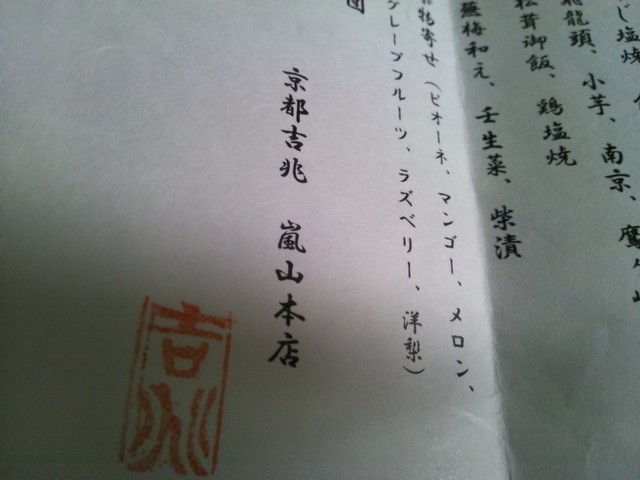 じ塩焼
飛龍頭、小芋、南京、鷹
松茸御飯、鶏塩焼
蕪梅和え、壬生菜、柴漬
物寄せ（ピオーネ、マンゴー、メロン、
グレープフルーツ、ラズベリー、洋梨）
京都吉兆　嵐山本店
吉兆